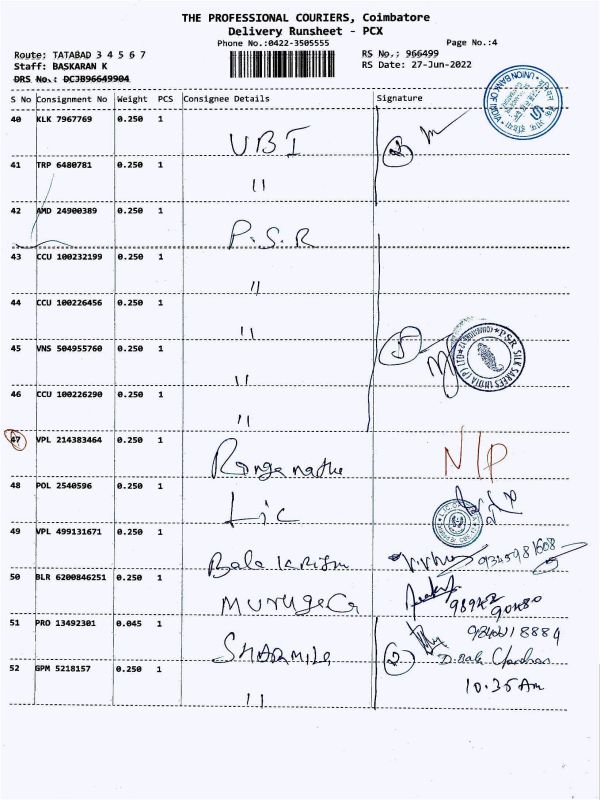 THE PROFESSIONAL COURIERS, Coimbatore
Delivery Runsheet - PCX
Phone No.:0422-3505555 Page No.:4
Route: TATABAD 3 4 5 6 7 RS No.: 966499
Staff: BASKARAN K RS Date: 27-Jun-2022
DRS No.: DCJB96649904
S No Consignment No Weight PCS Consignee Details Signature
40 KLK 7967769 0.250 1 UBI 2
UNION BANK OF INDIA
41 TRP 6480781 0.250 1 "
42 AMD 24900389 0.250 1 P.S.R
43 CCU 100232199 0.250 1 "
44 CCU 100226456 0.250 1 "
45 VNS 504955760 0.250 1 " 5
PSR SILK SAREES INDIA (P) LTD
46 CCU 100226290 0.250 1 "
47 VPL 214383464 0.250 1 Ranganathe N/P
48 POL 2540596 0.250 1 Lic
49 VPL 499131671 0.250 1 Bala krish
50 BLR 6200846251 0.250 1 MURUGeG
51 PRO 13492301 0.045 1 SHARMILA
52 GPM 5218157 0.250 1 " 2
10.35 Am